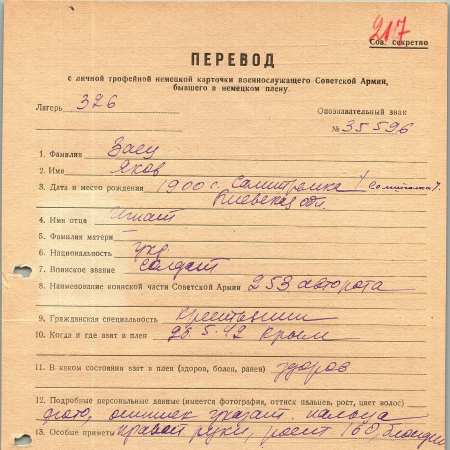 217
Сов. секретно
ПЕРЕВОД
с личной трофейной немецкой карточки военнослужащего Советской Армии,
бывшего в немецком плену.
Лагерь 326
Опознавательный знак
№ 35596
1. Фамилия Заец
2. Имя Яков
3. Дата и место рождения 1900 г.
Киевская обл.
4. Имя отца Игнат
5. Фамилия матери —
6. Национальность укр.
7. Воинское звание солдат
8. Наименование воинской части Советской Армии 253 авторота
9. Гражданская специальность крестьянин
10. Когда и где взят в плен 26.5.42 Крым
11. В каком состоянии взят в плен (здоров, болен, ранен) здоров
12. Подробные персональные данные (имеется фотография, оттиск пальцев, рост, цвет волос)
фото, оттиск указат. пальца
13. Особые приметы правой руки, рост 160, блондин